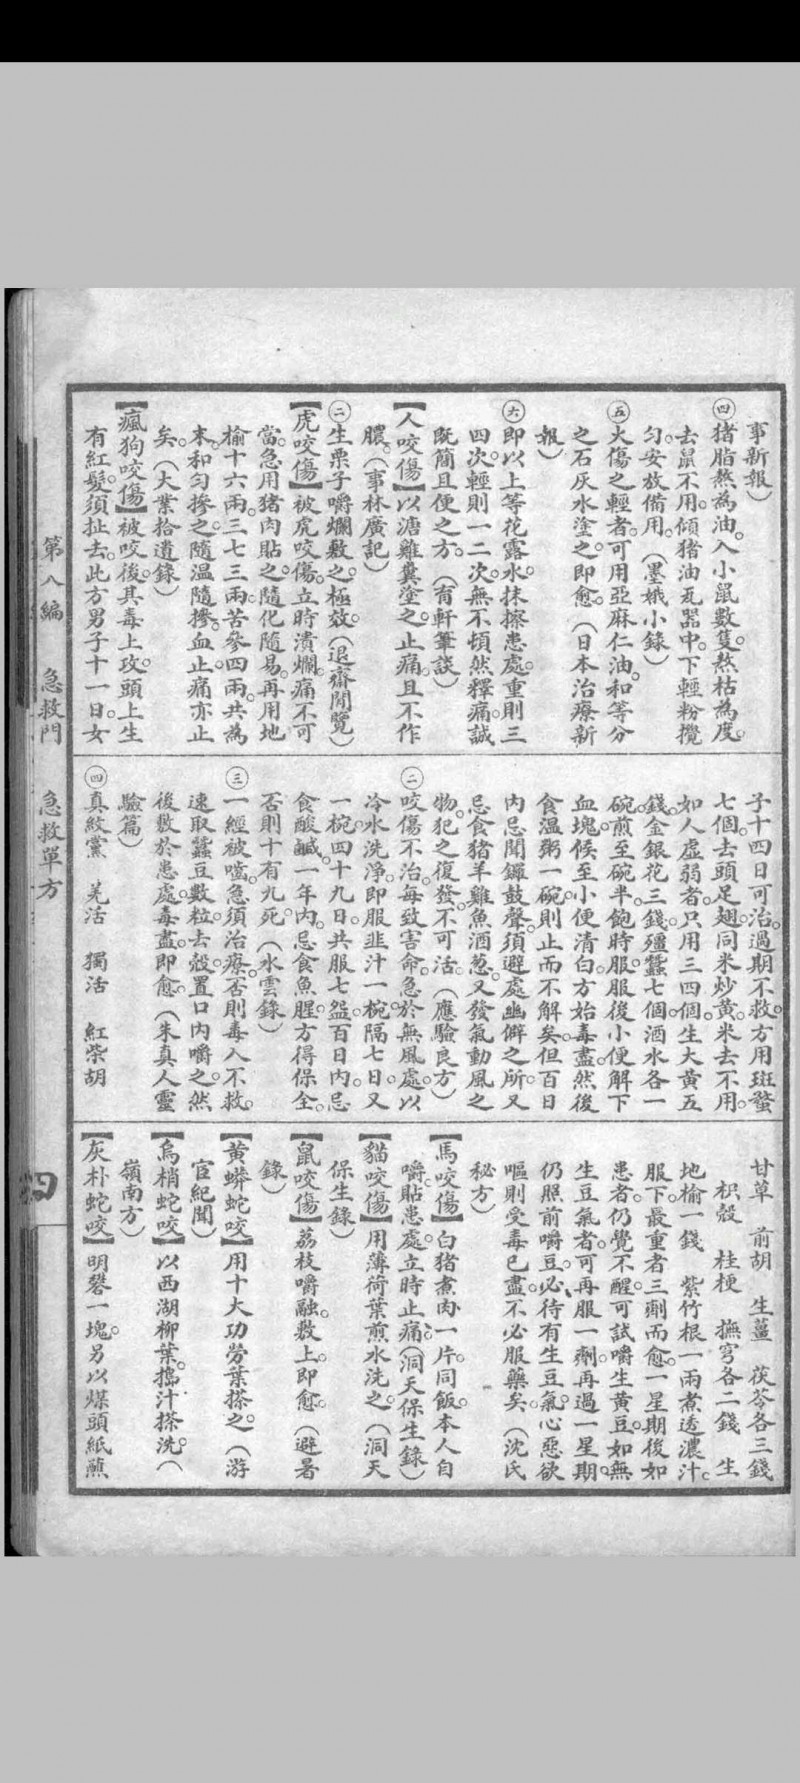 事新報）
㊃猪脂熬為油。入小鼠數隻。熬枯為度。
去鼠不用。傾猪油瓦器中。下輕粉攪
勻安放備用。（墨娥小錄）
㊄火傷之輕者。可用亞麻仁油。和等分
之石灰水塗之。即愈。（日本治療新
報）
㊅即以上等花露水。抹擦患處。重則三
四次。輕則一二次。無不頓然釋痛。誠
既簡且便之方。（有軒筆談）
【人咬傷】以溏雞糞塗之。止痛。且不作
膿。（事林廣記）
㊁生栗子嚼爛敷之。極效。（退齋閒覽）
【虎咬傷】被虎咬傷。立時潰爛。痛不可
當。急用猪肉貼之。隨化隨易。再用地
榆十六兩。三七三兩。苦參四兩。共為
末。和勻摻之。隨溫隨摻。血止。痛亦止
矣。（大業拾遺錄）
【瘋狗咬傷】被咬後。其毒上攻。頭上生
有紅髮。須扯去。此方男子十一日。女
子十四日可治。過期不救。方用斑蝥
七個。去頭足翅。同米炒黃。米去不用。
如人虛弱者。只用三四個。生大黃五
錢。金銀花三錢。殭蠶七個。酒水各一
碗。煎至碗半。飽時服。服後小便解下
血塊。候至小便清白。方始毒盡。然後
食溫粥一碗。則止而不解矣。但百日
內忌聞鑼鼓聲。須避處幽僻之所。又
忌食猪羊雞魚酒葱。又發氣動風之
物。犯之復發。不可活。（應驗良方）
㊁咬傷不治。每致害命。急於無風處。以
冷水洗淨。即服韭汁一椀。隔七日。又
一椀。四十九日。共服七盌。百日內。忌
食酸鹹。一年內。忌食魚腥。方得保全。
否則十有九死。（水雲錄）
㊂一經被噬。急須治療。否則毒入不救。
速取蠶豆數粒。去殼置口內嚼之。然
後敷於患處。毒盡即愈。（朱真人靈
驗篇）
㊃真紋黨　羌活　獨活　紅柴胡
甘草　前胡　生薑　茯苓各三錢
枳殼　桂梗　撫穹各二錢　生
地榆一錢　紫竹根一兩煮透濃汁。
服下。最重者三劑而愈。一星期後。如
患者。仍覺不醒。可試嚼生黃豆。如無
生豆氣者。可再服一劑。再過一星期。
仍照前嚼豆。必待有生豆氣。心惡欲
嘔。則受毒已盡。不必服藥矣。（沈氏
秘方）
【馬咬傷】白猪煮肉一片。同飯。本人自
嚼。貼患處。立時止痛。（洞天保生錄）
【貓咬傷】用薄荷葉煎水洗之。（洞天
保生錄）
【鼠咬傷】荔枝嚼融。敷上。即愈。（避暑
錄）
【黃蟒蛇咬】用十大功勞葉搽之。（游
宦紀聞）
【烏梢蛇咬】以西湖柳葉。搗汁搽洗。（
嶺南方）
【灰朴蛇咬】明礬一塊。另以煤頭紙蘸
第八編　急救門　急救單方